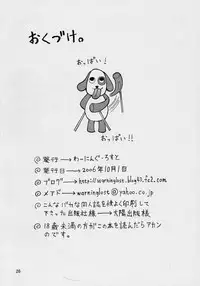 おくづけ。
おっぱい!
おっぱい!!
@ 発行→わーにんぐ・ろすと
@ 発行日→2006年10月1日
@ ブログ→http://warninglost.blog43.fc2.com
@ メアド→warninglost@yahoo.co.jp
@ こんなバカな同人誌を快よく印刷して
下さった出版社様→太陽出版様
@ 18歳未満の方がこの本を読んだらアカン
のです。